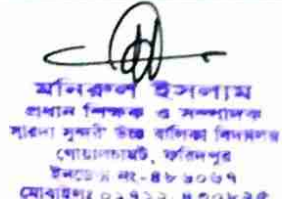 মনিরুল ইসলাম
প্রধান শিক্ষক ও সম্পাদক
সারদা সুন্দরী উচ্চ বালিকা বিদ্যালয়
গোয়ালচামট, ফরিদপুর
ইনডেক্স নং-৪৮৬০৬৭
মোবাইলঃ ০১৭১২